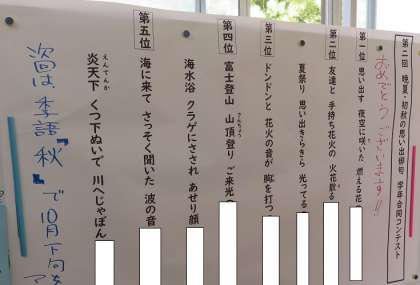 第二回 晩夏・初秋の思い出俳句 学年合同コンテスト
おめでとうございます!!
第一位 思い出す 夜空に咲いた 燃える花
第二位 友達と 手持ち花火の 火花散る
夏祭り 思い出きらきら 光ってる
第三位 ドンドンと 花火の音が 胸を打つ
第四位 富士登山 山頂登り ご来光
さんちょう
海水浴 クラゲにさされ あせり顔
第五位 海に来て さっそく聞いた 波の音
えんてんか
炎天下 くつ下ぬいで 川へじゃぼん
次回は、季語『秋』で10月下旬